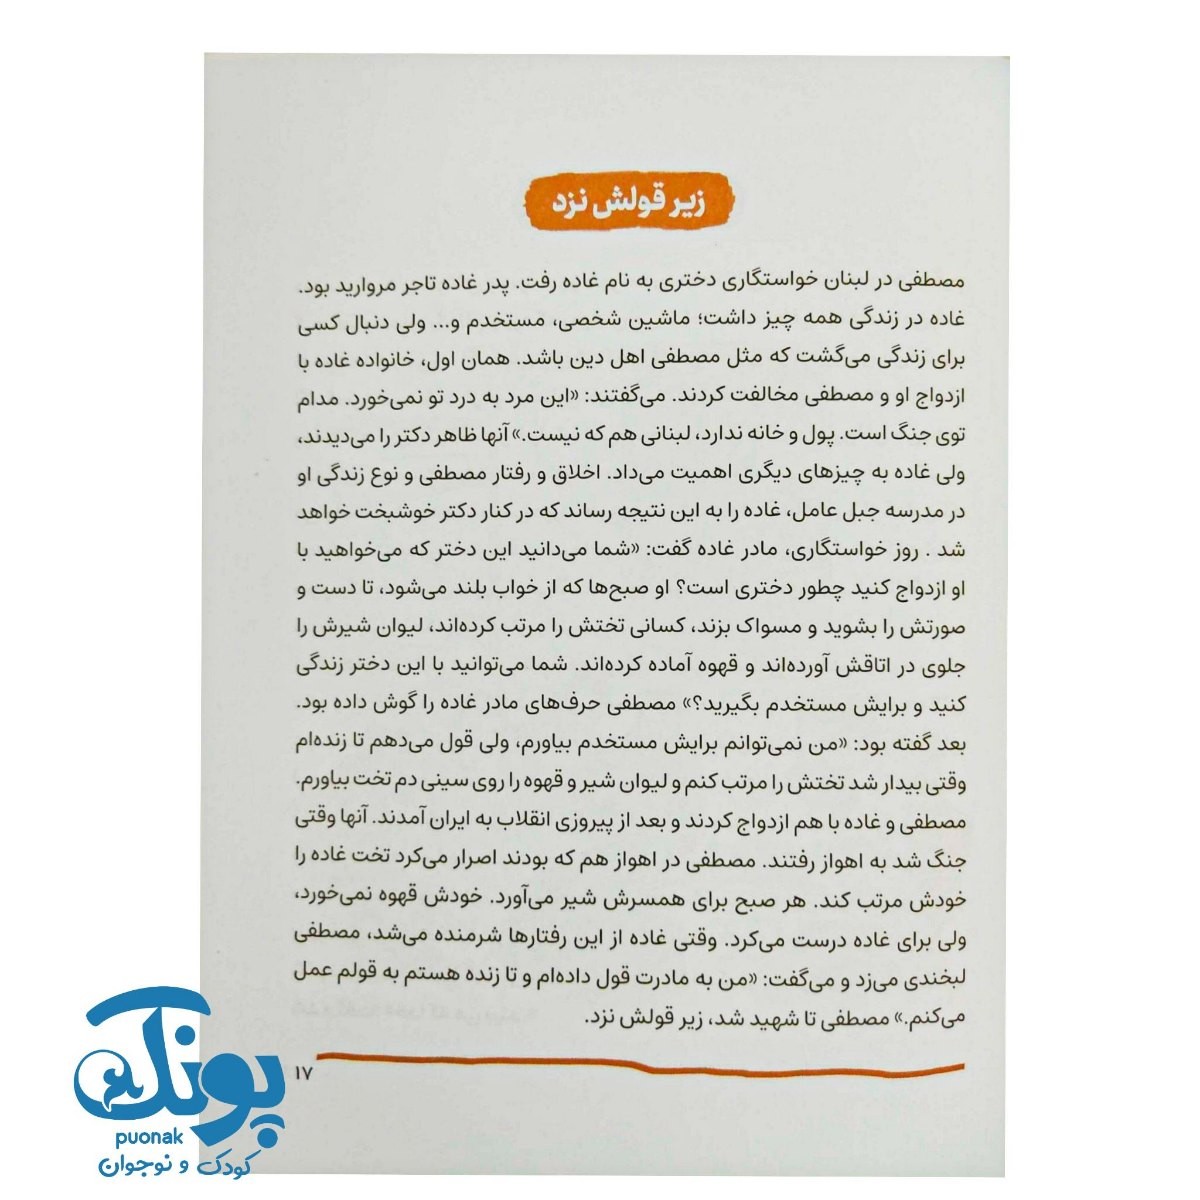 زیر قولش نزد
مصطفی در لبنان خواستگاری دختری به نام غاده رفت. پدر غاده تاجر مروارید بود.
غاده در زندگی همه چیز داشت؛ ماشین شخصی، مستخدم و... ولی دنبال کسی
برای زندگی می‌گشت که مثل مصطفی اهل دین باشد. همان اول، خانواده غاده با
ازدواج او و مصطفی مخالفت کردند. می‌گفتند: «این مرد به درد تو نمی‌خورد. مدام
توی جنگ است. پول و خانه ندارد، لبنانی هم که نیست.» آنها ظاهر دکتر را می‌دیدند،
ولی غاده به چیزهای دیگری اهمیت می‌داد. اخلاق و رفتار مصطفی و نوع زندگی او
در مدرسه جبل عامل، غاده را به این نتیجه رساند که در کنار دکتر خوشبخت خواهد
شد . روز خواستگاری، مادر غاده گفت: «شما می‌دانید این دختر که می‌خواهید با
او ازدواج کنید چطور دختری است؟ او صبح‌ها که از خواب بلند می‌شود، تا دست و
صورتش را بشوید و مسواک بزند، کسانی تختش را مرتب کرده‌اند، لیوان شیرش را
جلوی در اتاقش آورده‌اند و قهوه آماده کرده‌اند. شما می‌توانید با این دختر زندگی
کنید و برایش مستخدم بگیرید؟» مصطفی حرف‌های مادر غاده را گوش داده بود.
بعد گفته بود: «من نمی‌توانم برایش مستخدم بیاورم، ولی قول می‌دهم تا زنده‌ام
وقتی بیدار شد تختش را مرتب کنم و لیوان شیر و قهوه را روی سینی دم تخت بیاورم.
مصطفی و غاده با هم ازدواج کردند و بعد از پیروزی انقلاب به ایران آمدند. آنها وقتی
جنگ شد به اهواز رفتند. مصطفی در اهواز هم که بودند اصرار می‌کرد تخت غاده را
خودش مرتب کند. هر صبح برای همسرش شیر می‌آورد. خودش قهوه نمی‌خورد،
ولی برای غاده درست می‌کرد. وقتی غاده از این رفتارها شرمنده می‌شد، مصطفی
لبخندی می‌زد و می‌گفت: «من به مادرت قول داده‌ام و تا زنده هستم به قولم عمل
می‌کنم.» مصطفی تا شهید شد، زیر قولش نزد.
۱۷
پونک
puonak
کودک و نوجوان